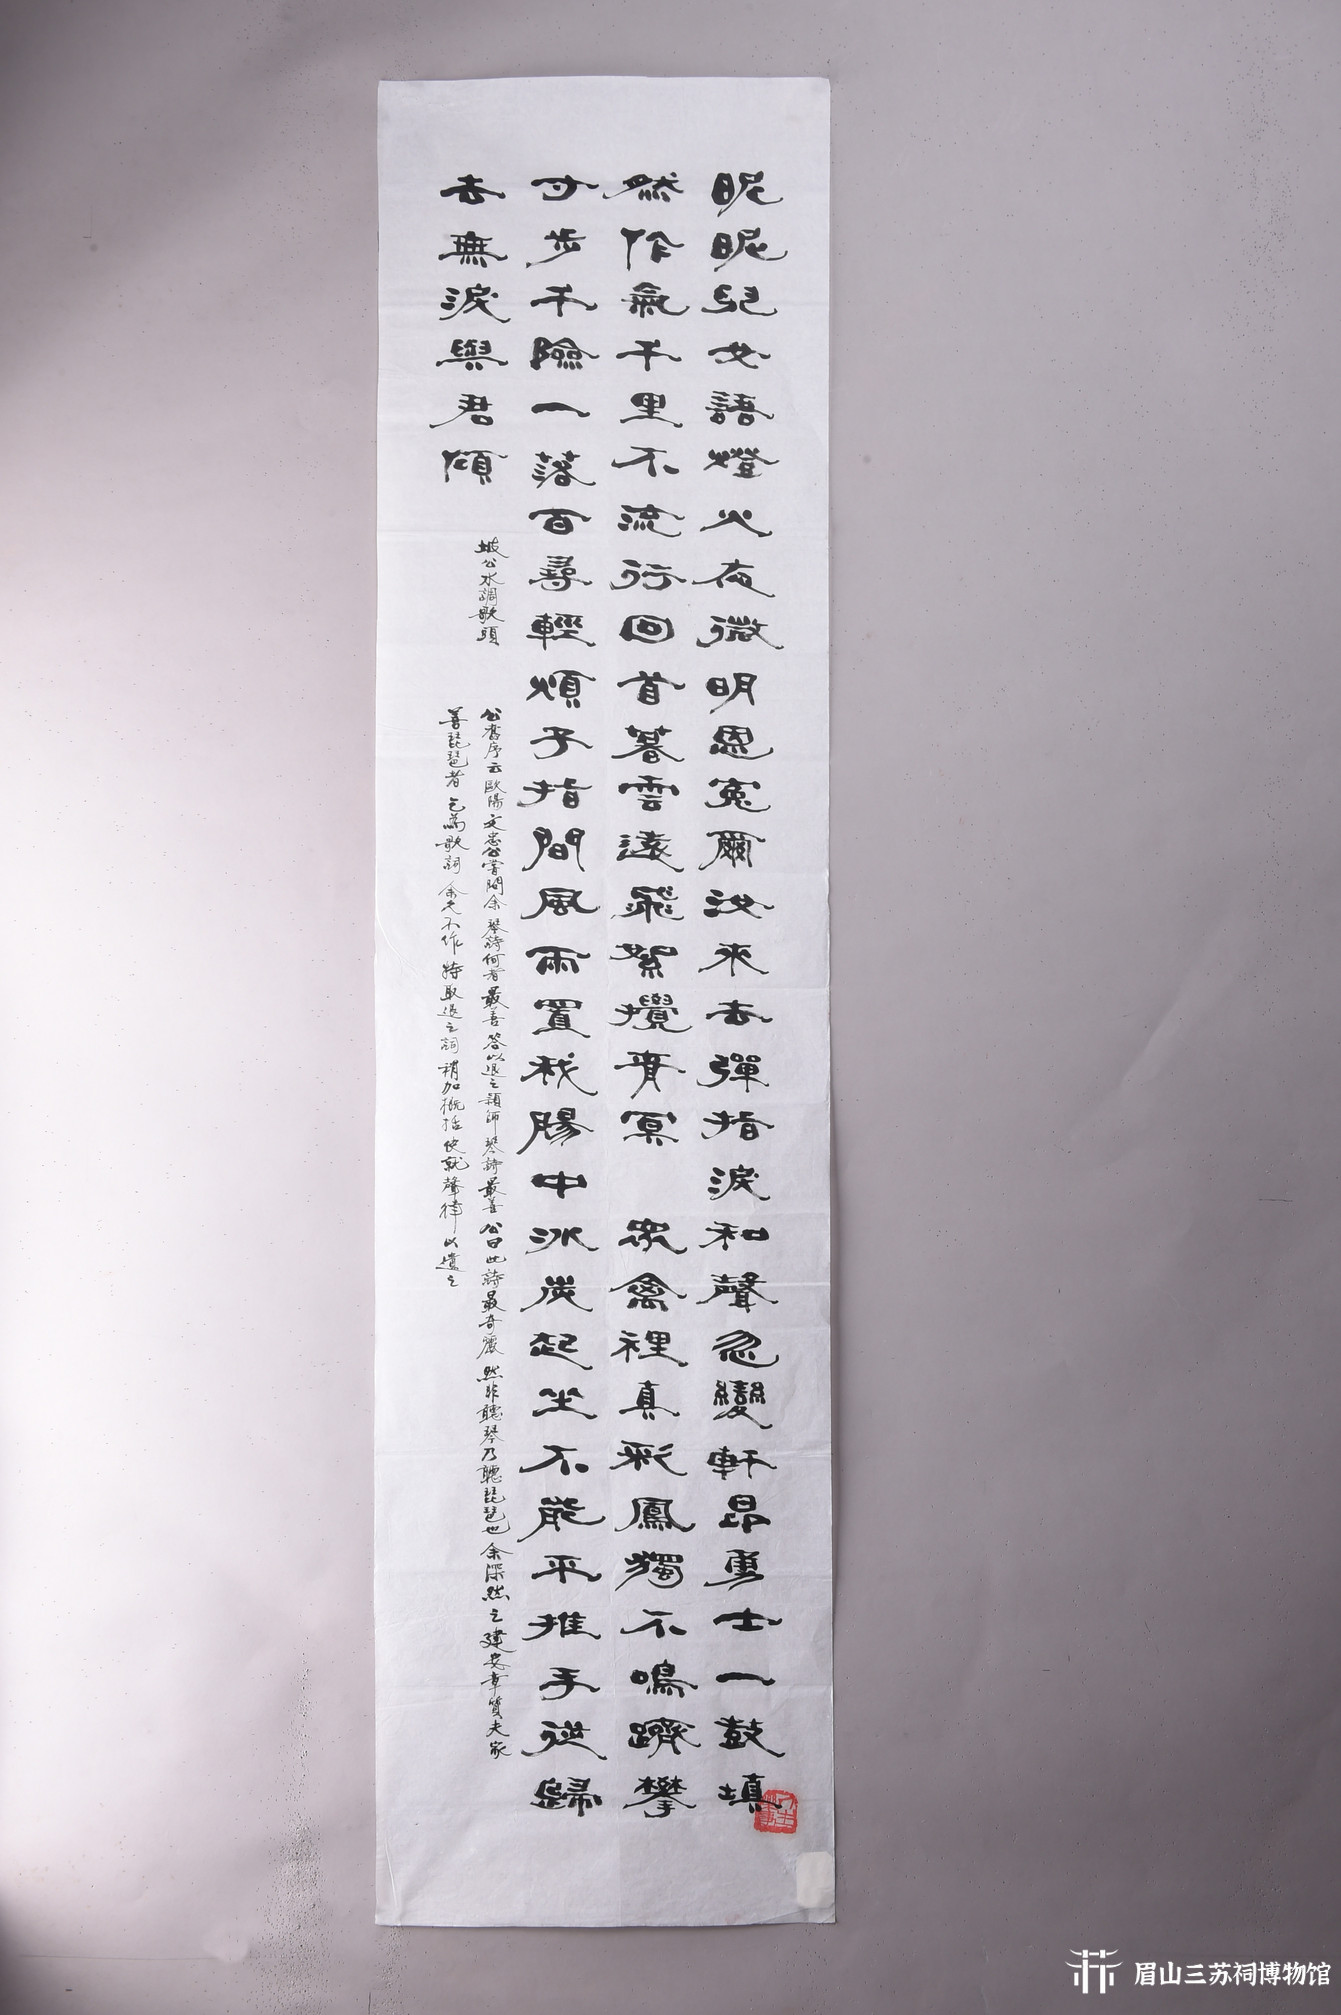 昵昵兒女語燈火夜微明恩冤爾汝來去彈指淚和聲忽變軒昂勇士一鼓填
然作氣千里不流行回首暮雲遠飛絮攪青冥 衆禽裡真彩鳳獨不鳴躋攀
寸步千險一落百尋輕煩子指間風雨置我腸中冰炭起坐不能平推手從歸
去無淚與君傾
坡公水調歌頭
公舊序云歐陽文忠公嘗問余琴詩何者最善答以退之穎師琴詩最善公曰此詩最奇麗然非聽琴乃聽琵琶也余深然之建安章質夫家
善琵琶者乞為歌詞余久不作特取退之詞稍加檃括使就聲律以遺之
眉山三苏祠博物馆